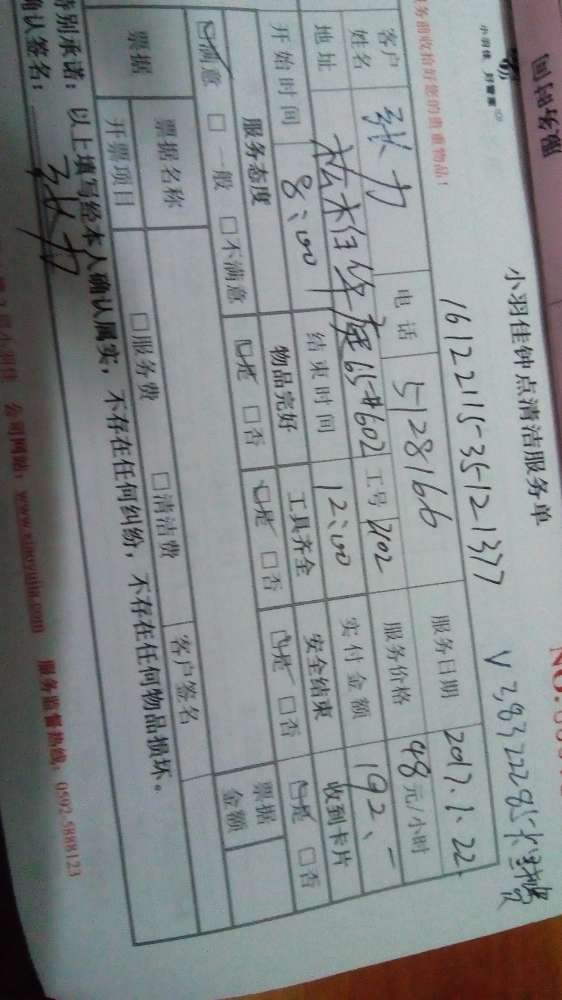 同时务服
小羽佳 好管家
小羽佳钟点清洁服务单
务前收拾好您的贵重物品！
客户姓名 张力 电话 5128166 服务日期 2017.1.22
地址 65#602 工号 2102 服务价格 48元/小时
开始时间 8:00 结束时间 12:00 实付金额 192.-
服务态度 物品完好 工具齐全 安全结束 收到卡片
☑满意 □一般 □不满意 ☑是 □否 ☑是 □否 ☑是 □否 ☑是 □否
票据 票据名称 □服务费 □清洁费 票据金额
开票项目 客户签名
特别承诺：以上填写经本人确认属实，不存在任何纠纷，不存在任何物品损坏。
确认签名： 张力
公司网站：www.xiaoyujia.com 服务监督热线：0592-5888123